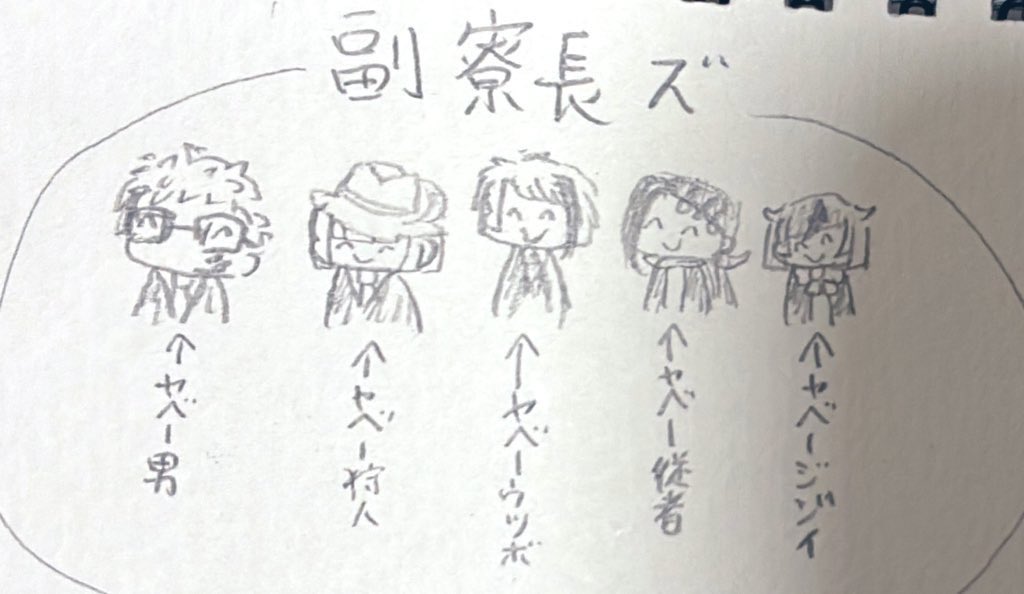 副寮長ズ
↑ヤベー男
↑ヤベー狩人
↑ヤベーウツボ
↑ヤベー従者
↑ヤベージジイ